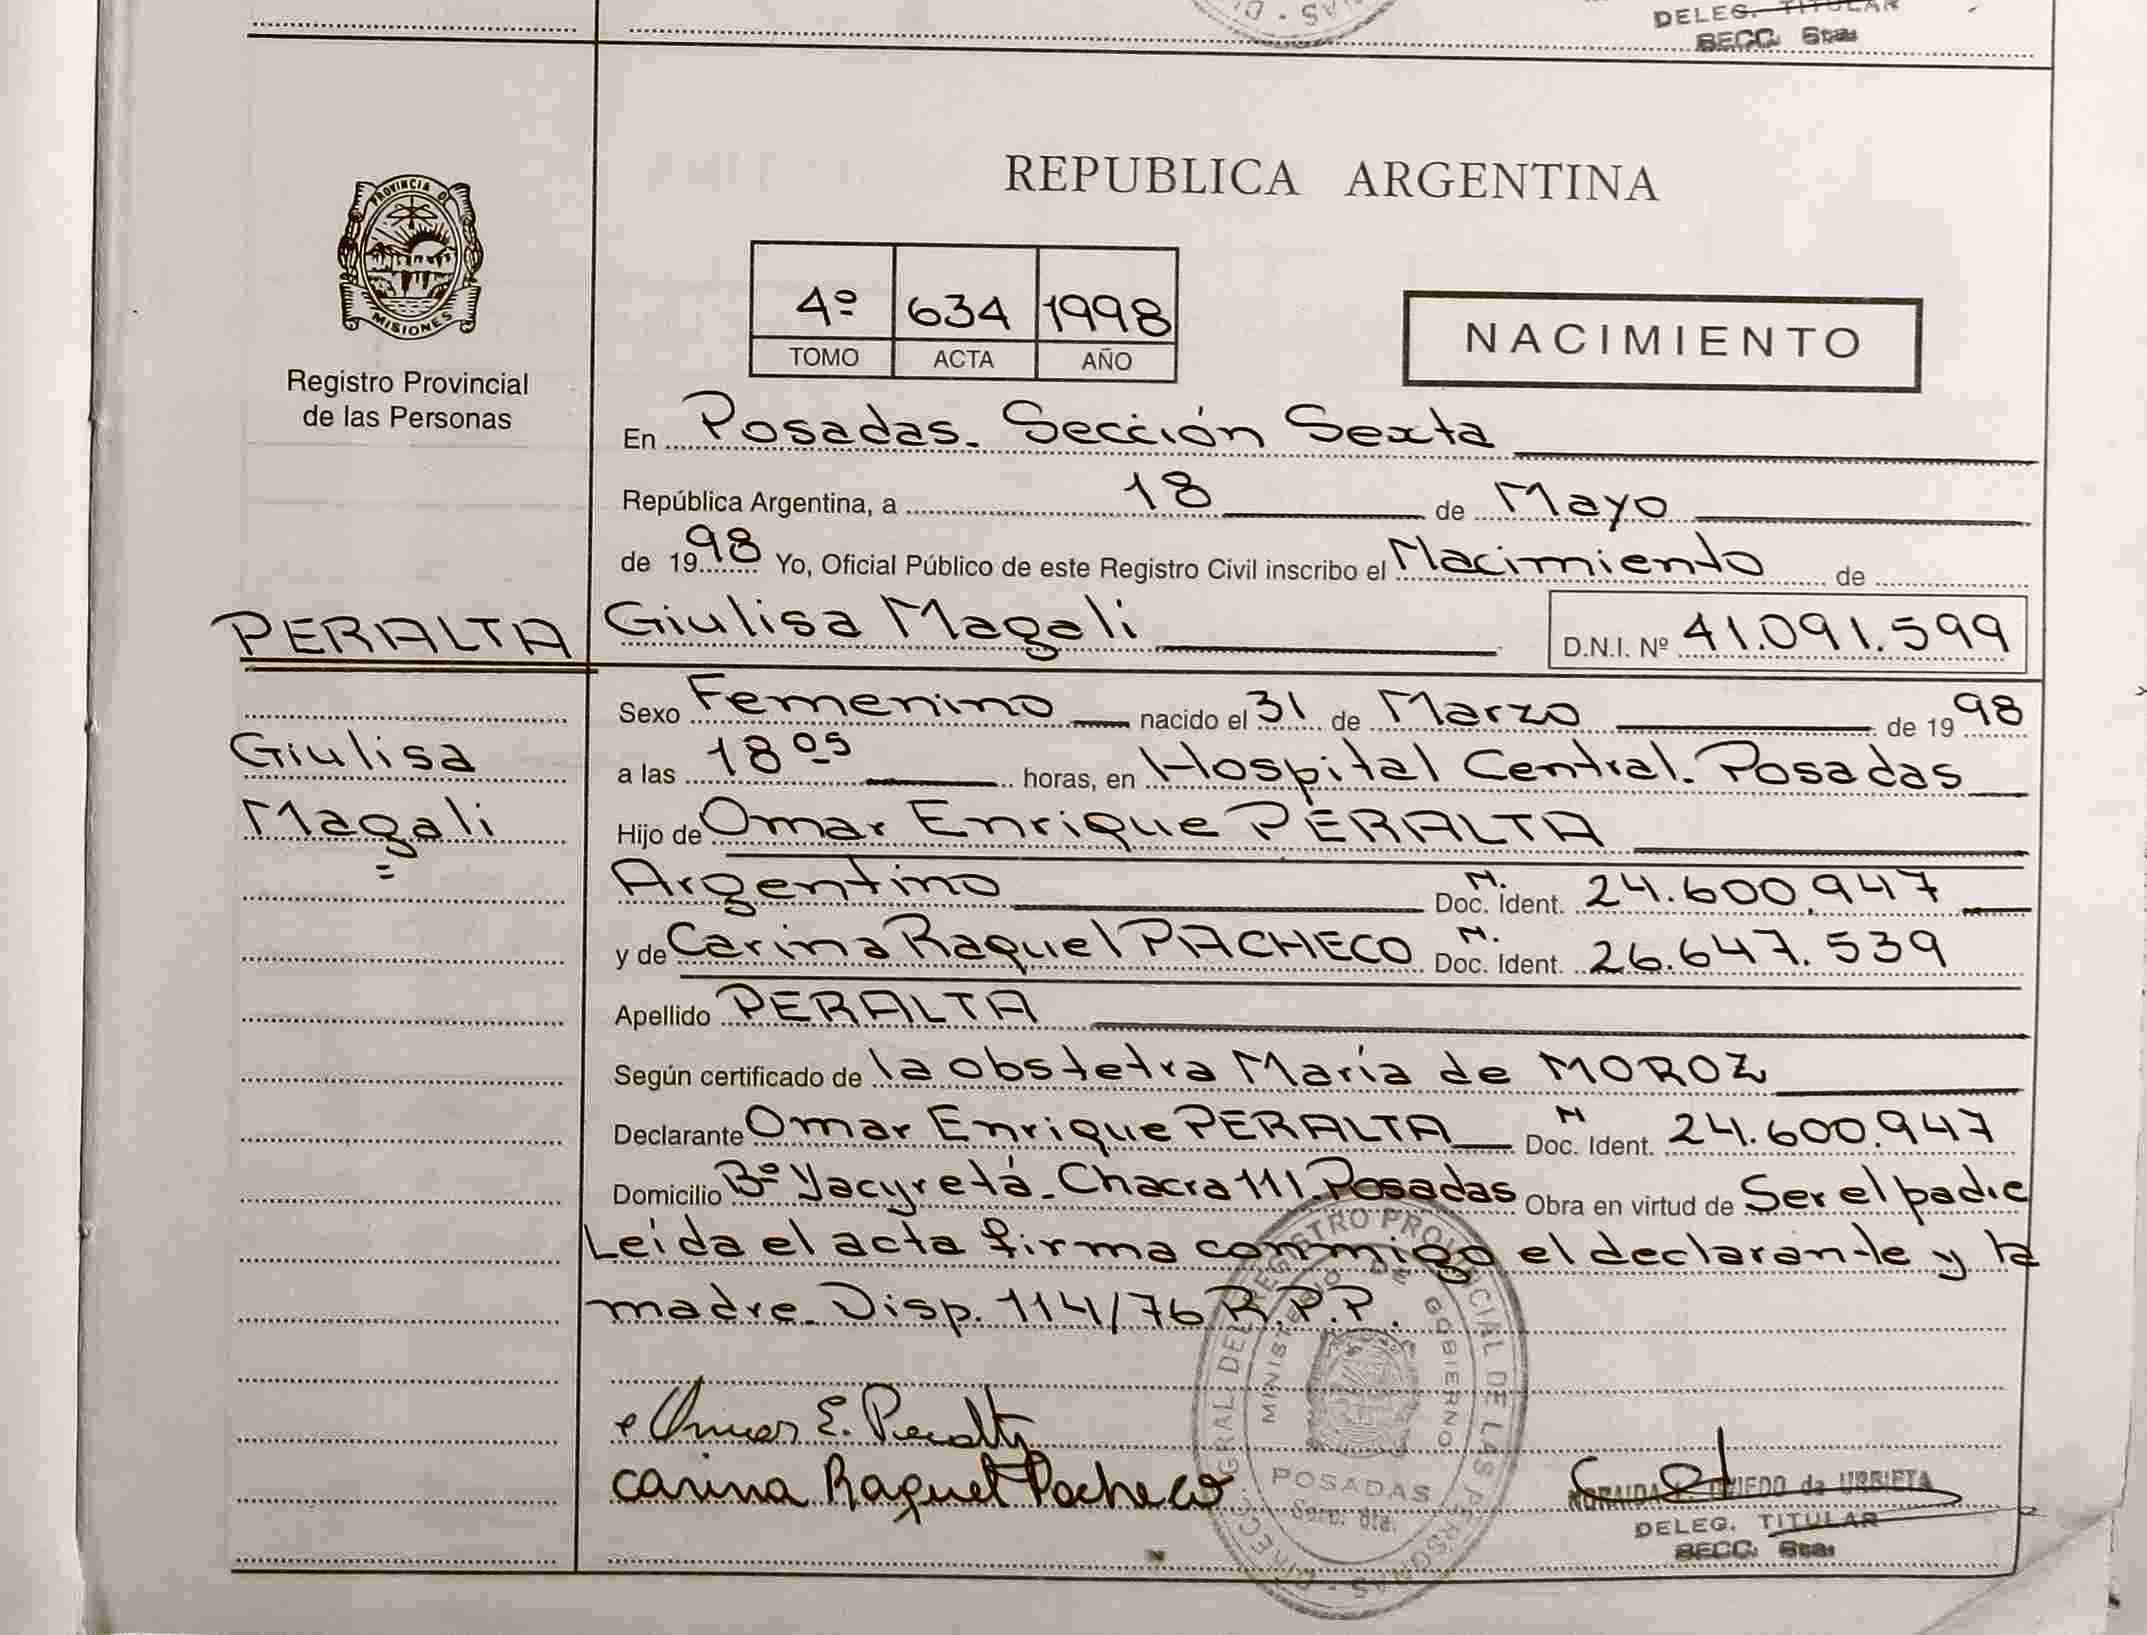 DELEG. TITULAR
SECC. 6ta.
PROVINCIA DE
MISIONES
Registro Provincial
de las Personas
REPUBLICA ARGENTINA
4º 634 1998
TOMO ACTA AÑO
NACIMIENTO
En Posadas. Sección Sexta
República Argentina, a 18 de Mayo
de 1998 Yo, Oficial Público de este Registro Civil inscribo el Nacimiento de
PERALTA Giulisa Magali D.N.I. Nº 41.091.599
Sexo Femenino nacido el 31 de Marzo de 1998
Giulisa
a las 18 05 horas, en Hospital Central. Posadas
Magali
Hijo de Omar Enrique PERALTA
Argentino N. Doc. Ident. 24.600.947
y de Carina Raquel PACHECO N. Doc. Ident. 26.647.539
Apellido PERALTA
Según certificado de la obstetra María de MOROZ
Declarante Omar Enrique PERALTA N Doc. Ident. 24.600.947
Domicilio Bº Yacyretá. Chacra 111. Posadas Obra en virtud de Ser el padre
Leida el acta firma conmigo el declarante y la
madre. Disp. 114/76 R.P.P.
Omar E. Peralta
Carina Raquel Pacheco
DIRECC. GRAL DEL REGISTRO PROVINCIAL DE LAS PERSONAS
MINISTERIO DE GOBIERNO
POSADAS
OVIEDO de URBIETA
DELEG. TITULAR
SECC. 6ta.